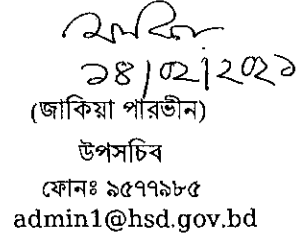 ১৪|০২|২০২১
(জাকিয়া পারভীন)
উপসচিব
ফোনঃ ৯৫৭৭৯৮৫
admin1@hsd.gov.bd